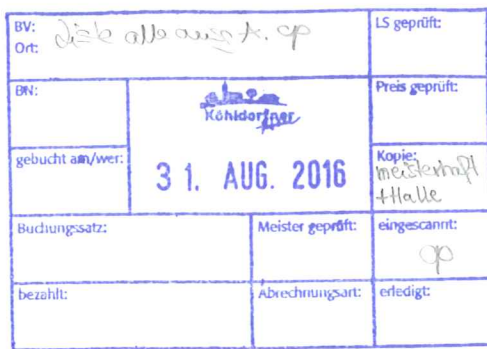 BV:
Ort:
LS geprüft:
BN:
Köhldorfner
Preis geprüft:
gebucht am/wer:
31. AUG. 2016
Kopie:
meisterhaft
+Halle
Buchungssatz:
Meister geprüft:
eingescannt:
gp
bezahlt:
Abrechnungsart:
erledigt: